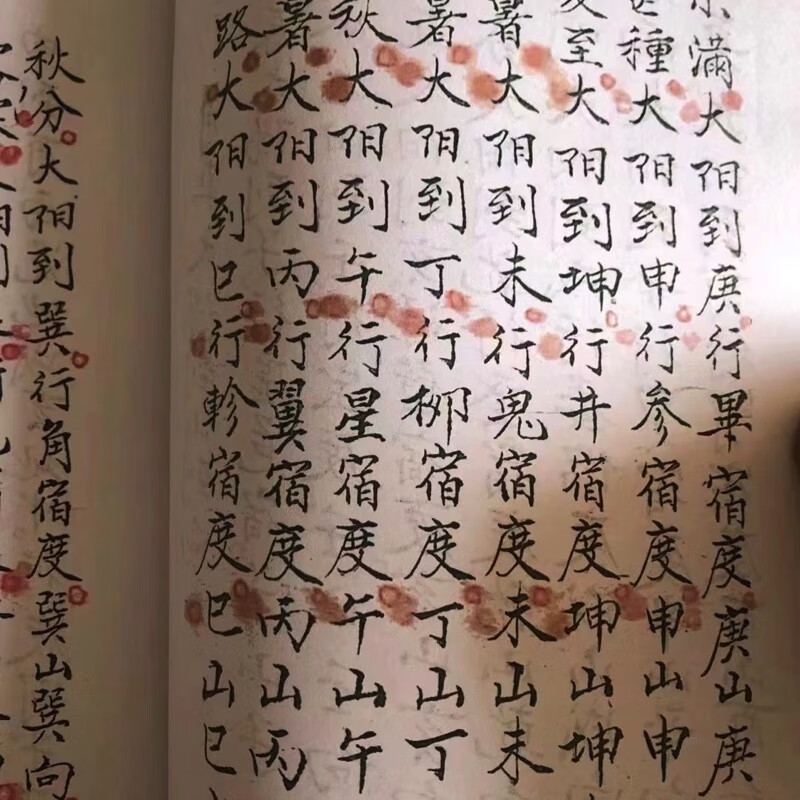 滿大阳到庚行畢宿度庚山庚
種大阳到申行参宿度申山申
至大阳到坤行井宿度坤山坤
暑大阳到未行鬼宿度未山未
暑大阳到丁行柳宿度丁山丁
秋大阳到午行星宿度午山午
暑大阳到丙行翼宿度丙山丙
路大阳到巳行軫宿度巳山巳
秋分大阳到巽行角宿度巽山巽向